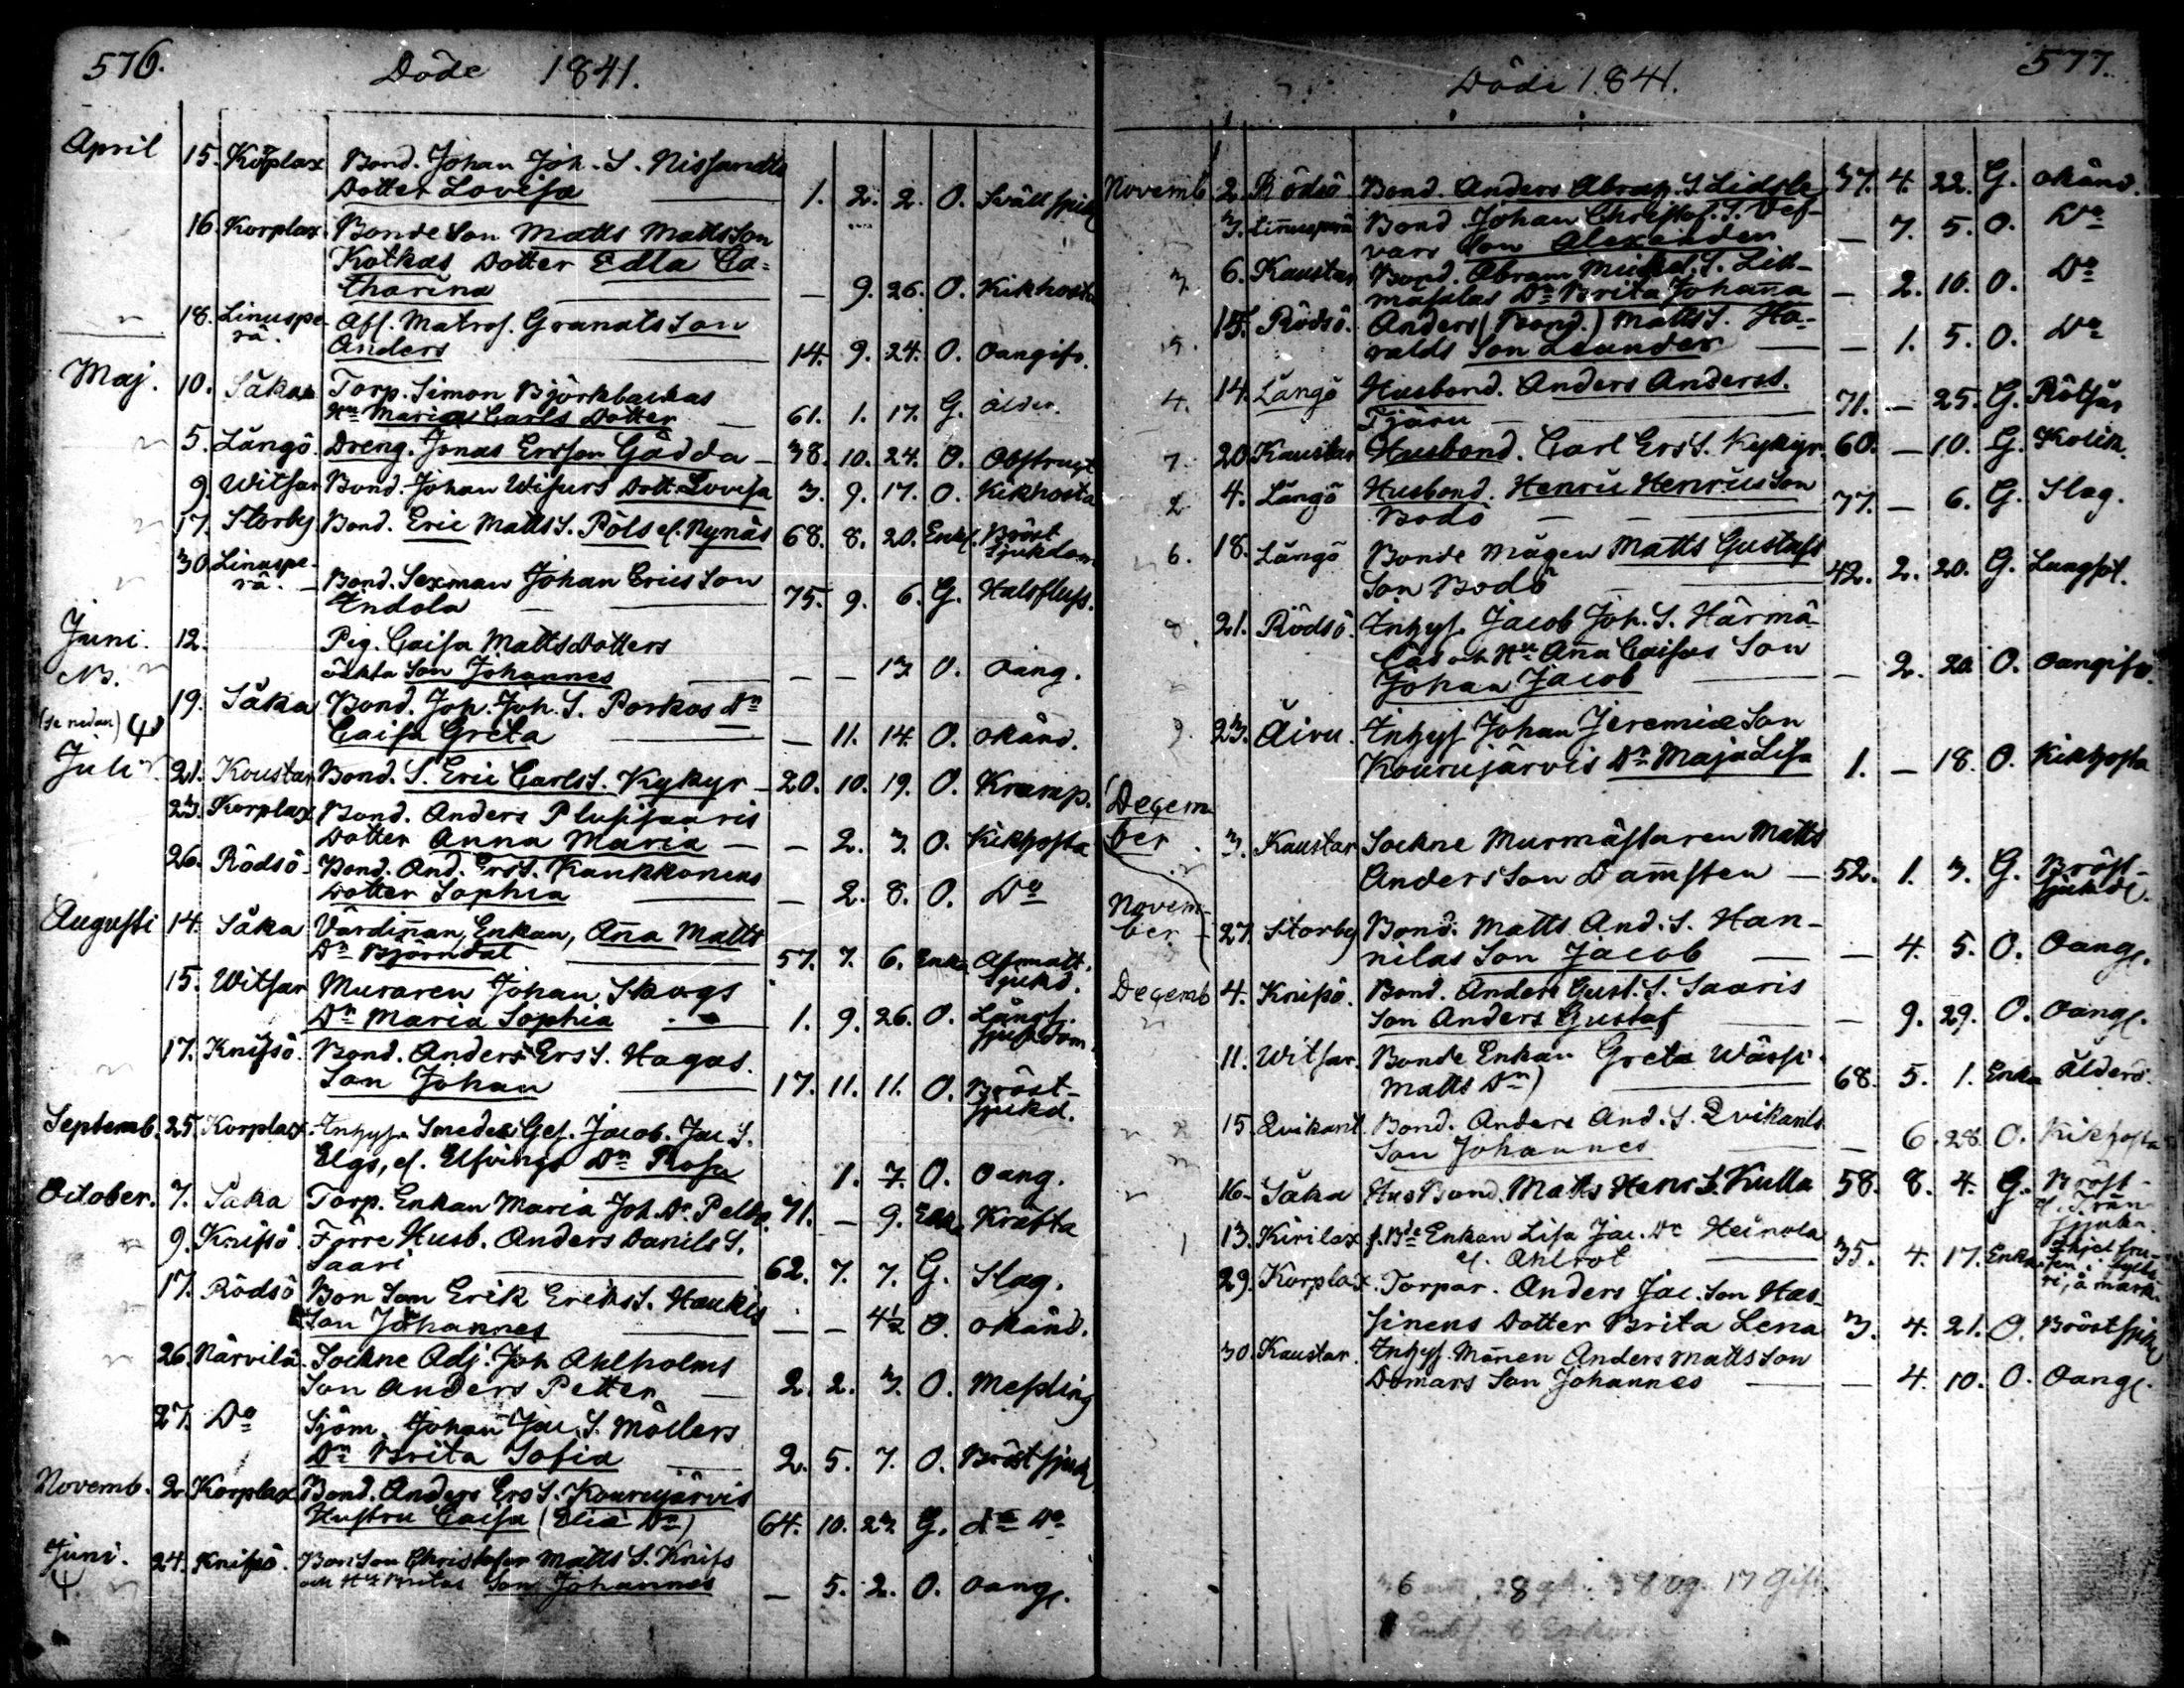 576.
Döde 1841.
April 15. Korplax Bond. Johan Joh. S. Nissandts
Dotter Lovisa 1. 2. 2. O. Svullsjuk
16. Korplax Bonde Son Matts Matts Son
Kotkas Dotter Edla Ca-
tharina — 9. 26. O. Kikhosta
18. Linuspe- Afs. Matros. Granats Son
rä. Anders 14. 9. 24. O. Oangifv.
Maj. 10. Såka Torp. Simon Björkbackas
Hu Maria Carls Dotter — 61. 1. 17. G. ålder.
5. Långö. Dreng. Jonas Ersson Gädda — 38. 10. 24. O. Obstruqt
9. Witsar Bond. Johan Wisurs Dott. Lovisa 3. 9. 17. O. Kikhosta
17. Storby Bond. Eric Matts S. Pöls el. Nynäs 68. 8. 20. Enkl. Bröst
sjukdom
30. Linuspe-
rä. — Bond. Sexman Johan Erics Son
Indola — 75. 9. 6. G. Halsfluss.
Juni. 12. Pig. Caisa Matts Dotters
NB. oäkta Son Johannes — — 13 O. oang.
19. Såka Bond. Joh. Joh. S. Porkas Dr
(se nedan) Caisa Greta — 11. 14. O. okänd.
Juli 21. Koustar Bond. S. Eric Carls S. Kykyr — 20. 10. 19. O. Kramp.
23. Korplax Bond. Anders Plusisaaris
Dotter Anna Maria — — 2. 3. O. Kikhosta
26. Rödsö. Bond. And. Ers S. Kaukkonens
Dotter Sophia — 2. 8. O. Do
Augusti 14. Såka Värdinnan, Enkan, Anna Matts
Dr Björndal 57. 7. 6. Enka Afmatt.
sjukd.
15. Witsar Muraren Johan Skogs
Dr Maria Sophia 1. 9. 26. O. Långs.
sjukdom
17. Knifsö. Bond. Anders Ers S. Hagas.
Son Johan 17. 11. 11. O. Bröst-
sjukd.
Septemb. 25. Korplax. Inhys. Smeden Ges. Jacob. Jac. S.
Elgs, el. Elfvings Dr Rosa 1. 7. O. oang.
October. 7. Såka Torp. Enkan Maria Joh. Dr Pelto 71. — 9. Enka Kräfta
9. Knifsö. Förre Husb. Anders Danils S.
Saari 62. 7. 7. G. Slag.
17. Rödsö Bon Son Erik Eriks S. Haukis
Son Johannes — — 4½ O. okänd.
26. Närvilä. Sockne Adj. Joh Ahlholms
Son Anders Petter — 2. 2. 3. O. Messling
27. Do Sjöm. Johan Jac. S. Möllers
Dr Brita Sofia 2. 5. 7. O. Bröstsjuk
Novemb. 2. Korplax Bond. Anders Ers S. Kourujärvis
Hustru Caisa (Elia Dr) 64. 10. 23. G. do Do
Juni. 24. Knifsö. Bon Son Christofer Matts S. Knifs
och Hu Britas Son Johannes — 5. 2. O. oang.
577.
Döde 1841.
Novemb 2. Rödsö Bond. Anders Abrah. S. Lidsle 37. 4. 22. G. okänd.
3. Linusperä Bond. Johan Christof. S. Vef-
vars Son Alexander — 7. 5. O. Do
6. Kaustar Bond. Abram Mickel. S. Lin-
mäsalas Dr Brita Johanna — 2. 10. O. Do
15. Rödsö. Anders (Bond.) Matts S. Ha-
ralds Son Leander — — 1. 5. O. Do
4. 14. Långö Husbond. Anders Anders S.
Tjäru 71. — 25. G. Rötsår
7. 20. Kaustar Husbond. Carl Ers S. Kykyr. 60. — 10. G. Kolik.
4. Långö Husbond. Henric Henrics Son
Bodö — 77. — 6. G. Slag.
6. 18. Långö Bonde Mågen Matts Gustafs
Son Bodö 42. 2. 20. G. Lungsot.
8. 21. Rödsö. Inhys. Jacob Joh. S. Härmä-
läs och Hu Anna Caisas Son
Johan Jacob — 2. 20. O. oangifv.
9. 23. Åivu. Inhys Johan Jeremiæ Son
Kourujärvis Dr Maja Lisa 1. — 18. O. Kikhosta
Decem-
ber 3. Kaustar Sockne Murmästaren Matts
Anders Son Damsten — 52. 1. 3. G. Bröst-
sjukd.
Novem-
ber 27. Storby Bond. Matts And. S. Han-
nilas Son Jacob — — 4. 5. O. Oang.
Decemb 4. Knifsö. Bond. Anders Gust. S. Saaris
Son Anders Gustaf — 9. 29. O. oang.
11. Witsar. Bonde Enkan Greta Wässi
Matts Dr) 68. 5. 1. Enka Ålderd.
15. Qvikant. Bond. Anders And. S. Qvikants
Son Johannes — 6. 28. O. Kikhosta
16. Såka Hus Bond. Matts Henr S. Kulla 58. 8. 4. G. Bröst-
el. Trån-
sjuka
13. Kirilax f. Bde Enkan Lisa Jac. Dr Heinola
el. Ahlrot 35. 4. 17. Enka
29. Korplax. Torpar. Anders Jac. Son Has-
sinens Dotter Brita Lena 3. 4. 21. O. Bröstsjuk
30. Kaustar. Inhys. Månen Anders Matts Son
Domars Son Johannes — — 4. 10. O. Oang.
17 Gift.